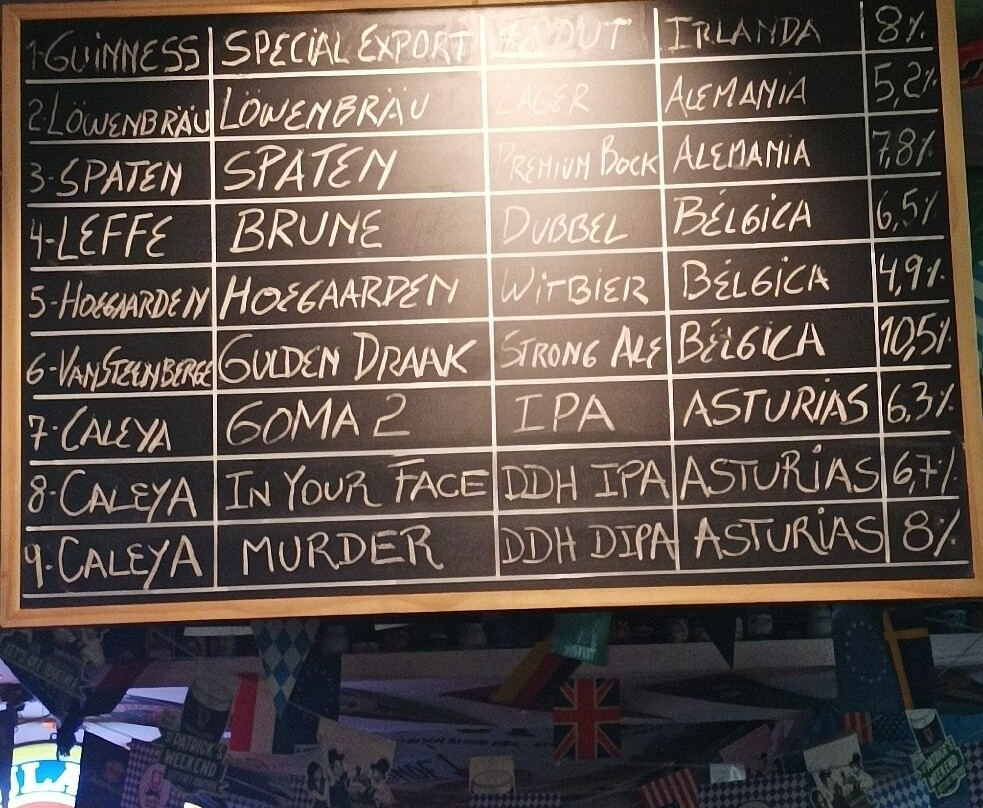 1-GUINNESS SPECIAL EXPORT STOUT IRLANDA 8%
2-LÖWENBRÄU LÖWENBRÄU LAGER ALEMANIA 5,2%
3-SPATEN SPATEN PREMIUM BOCK ALEMANIA 7,8%
4-LEFFE BRUNE DUBBEL BÉLGICA 6,5%
5-HOEGAARDEN HOEGAARDEN WITBIER BÉLGICA 4,9%
6-VANSTEENBERGE GULDEN DRAAK STRONG ALE BÉLGICA 10,5%
7-CALEYA GOMA 2 IPA ASTURIAS 6,3%
8-CALEYA IN YOUR FACE DDH IPA ASTURIAS 6,7%
9-CALEYA MURDER DDH DIPA ASTURIAS 8%
ST PATRICK'S
WEEKEND
PATRICK'S
WEEKEND